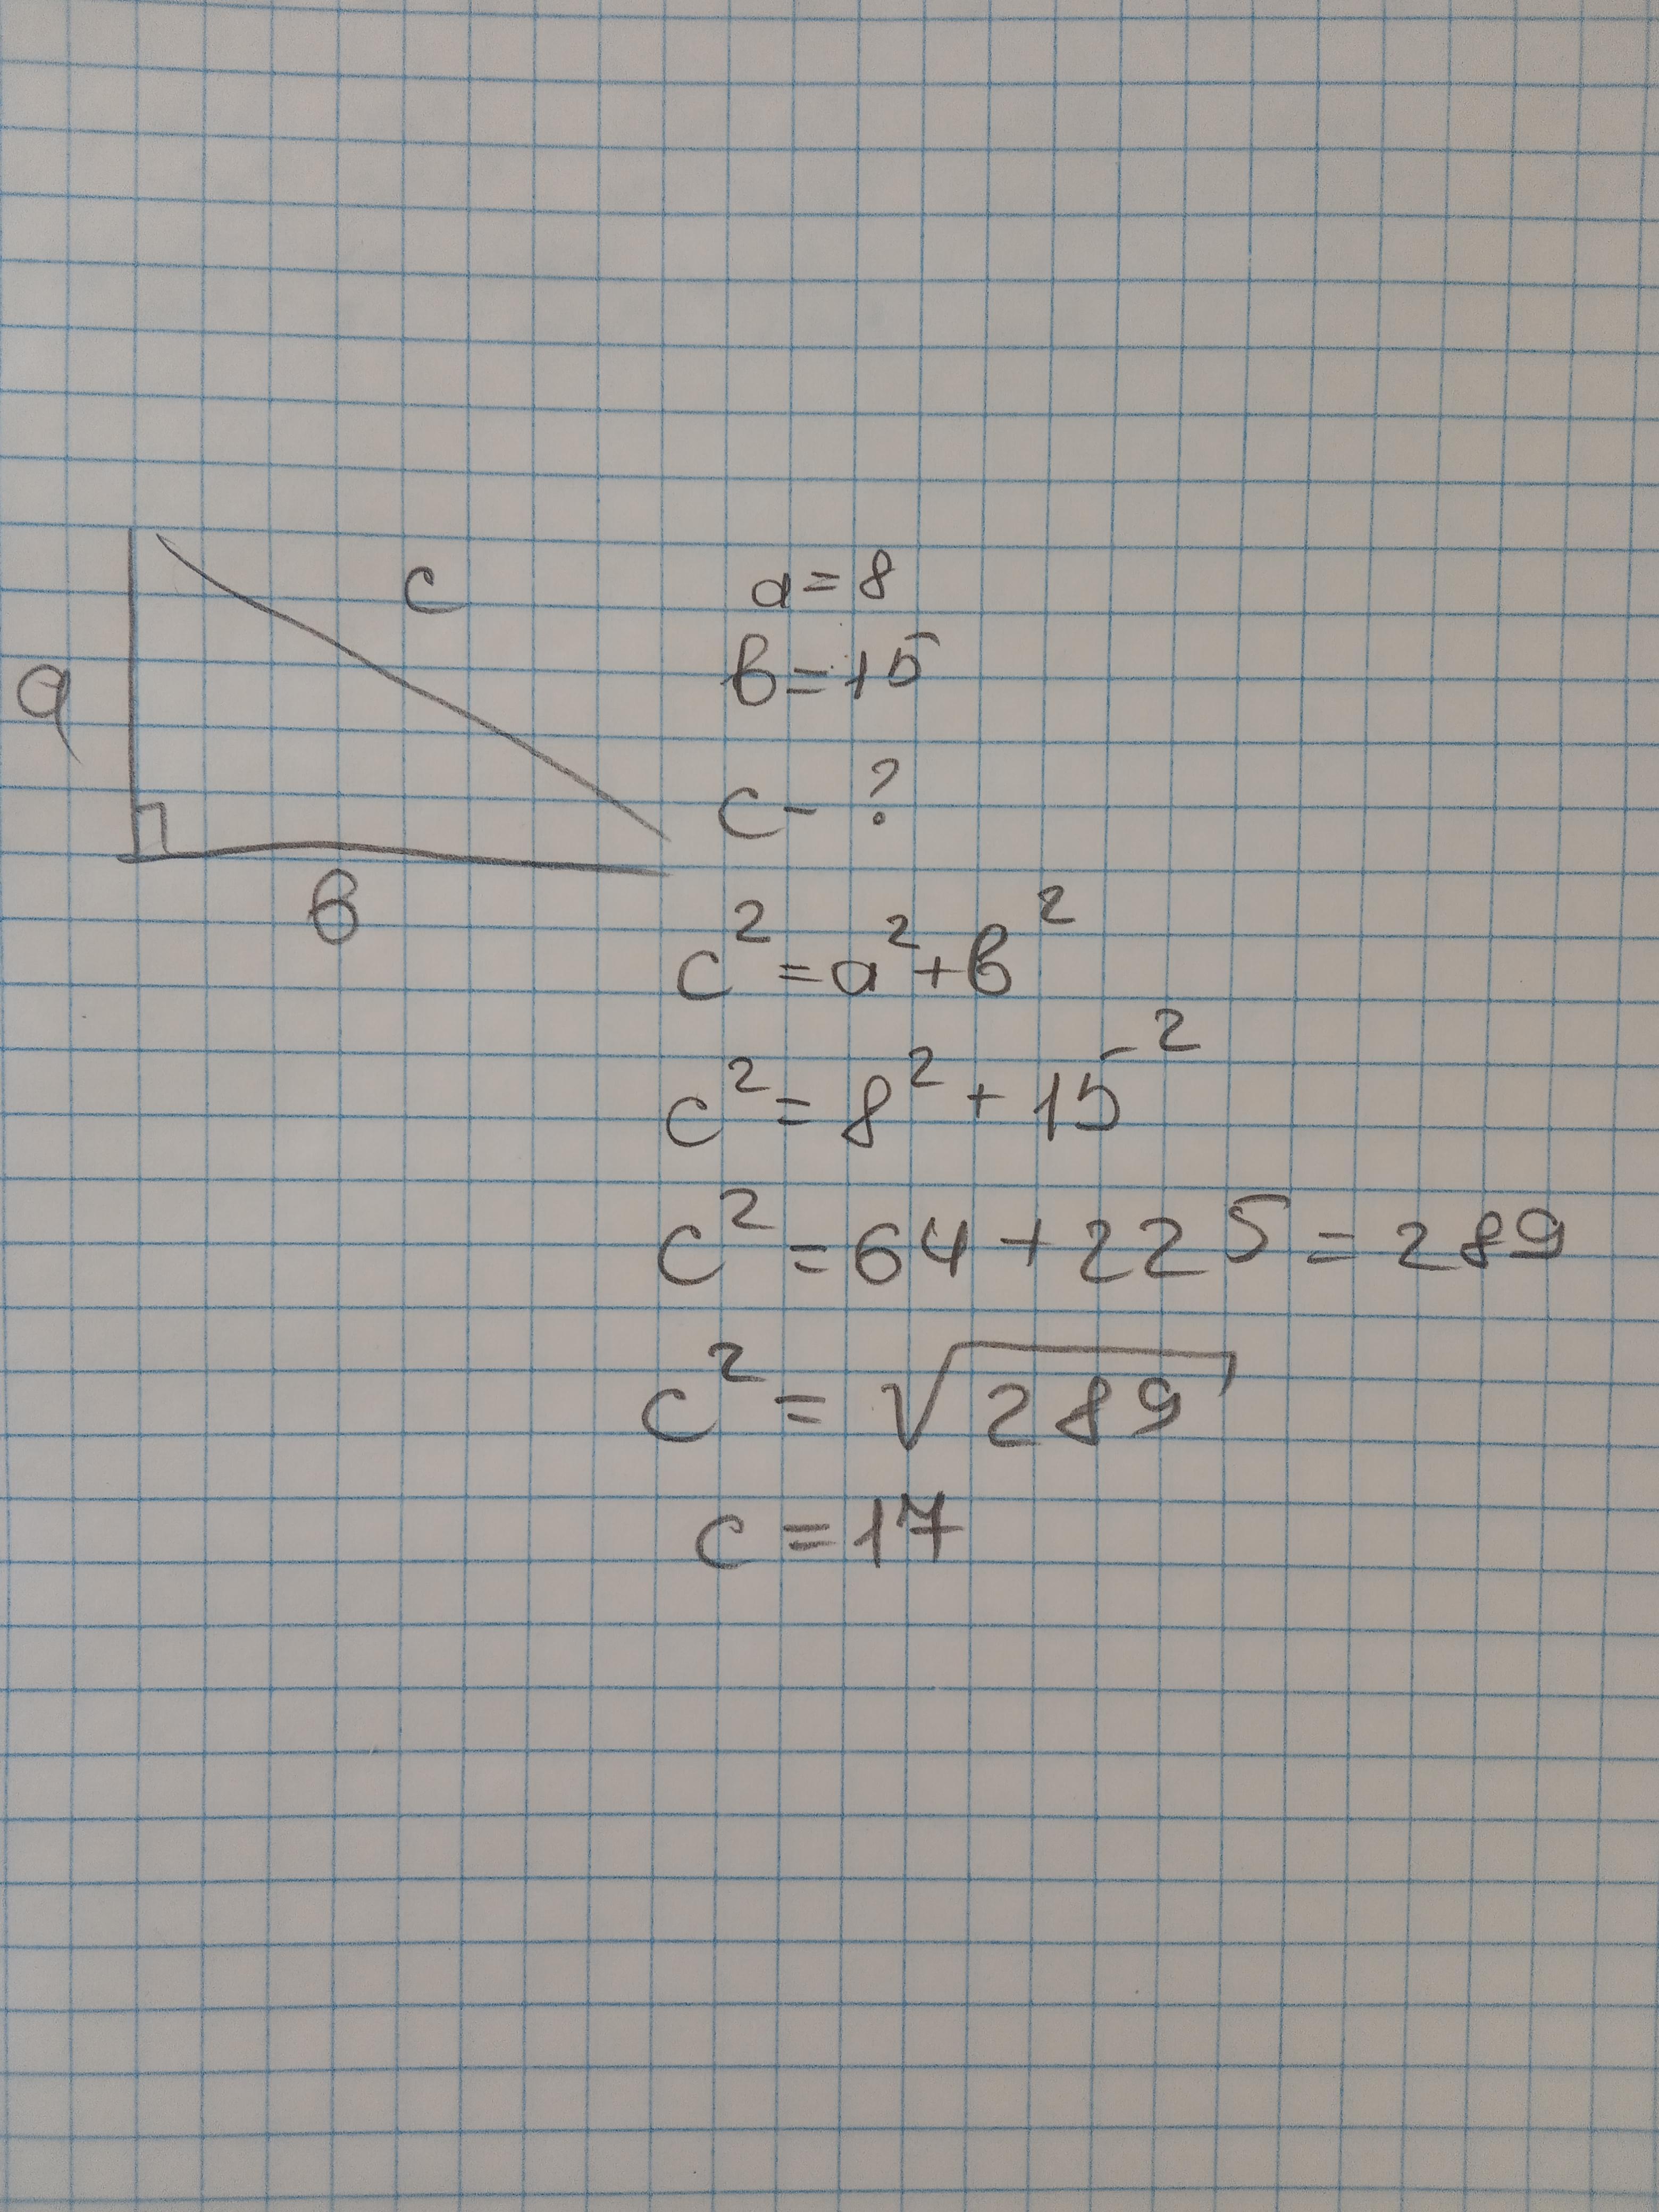 c
a
в
a = 8
в = 15
c - ?
c² = a² + в²
c² = 8² + 15²
c² = 64 + 225 = 289
c² = √289
c = 17